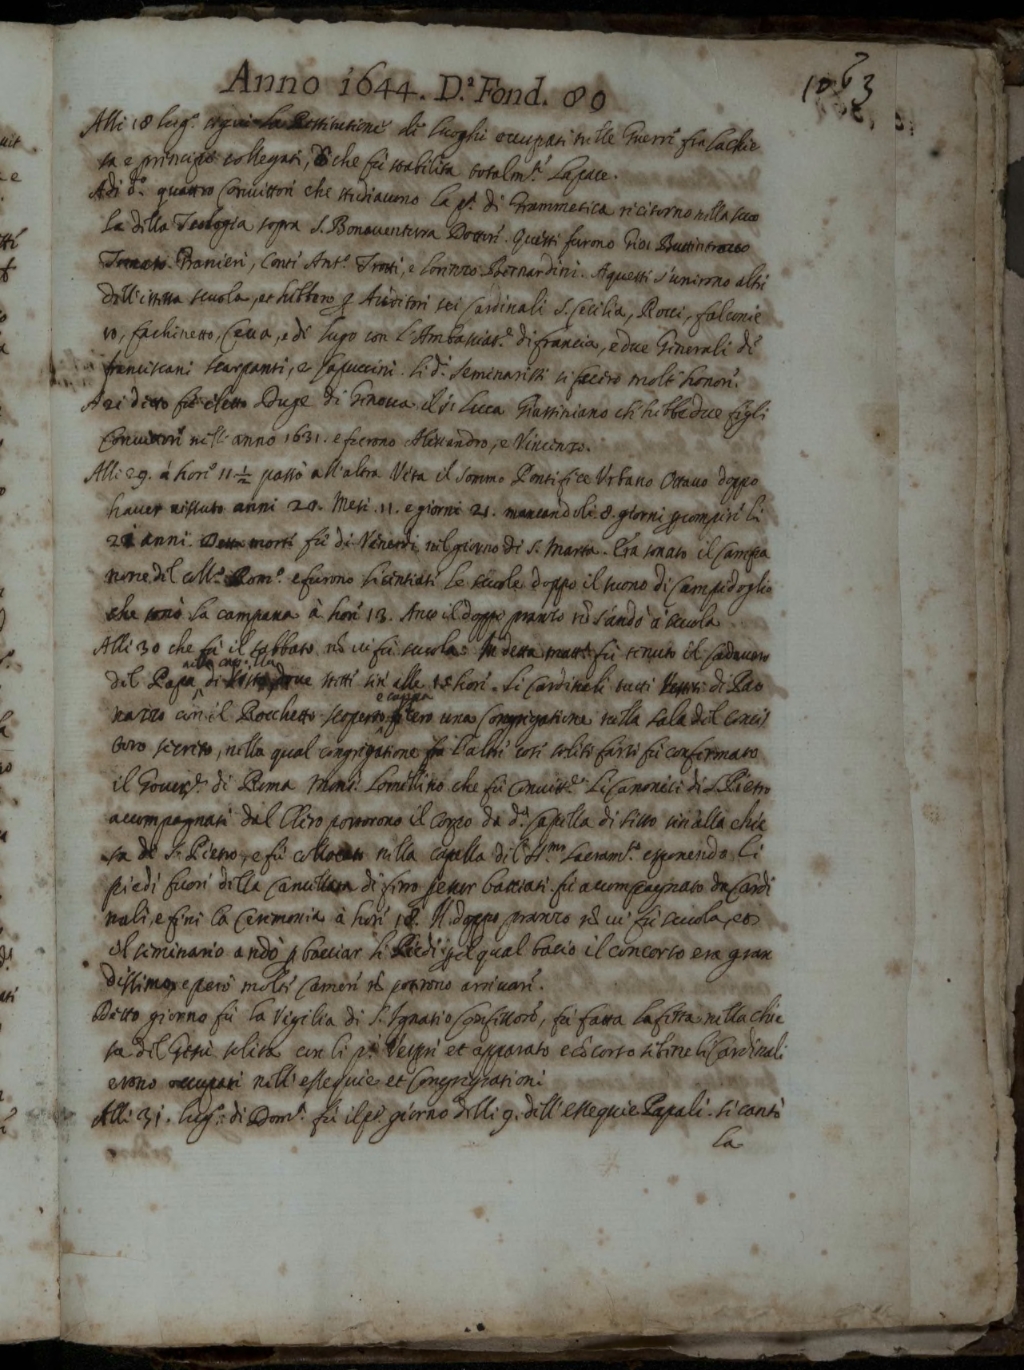 Anno 1644. D.ª Fond. 80
1063
Alli 18 lug.º seguì la Restitutione di luoghi occupati nelle Guerre fra la chie
sa e principi collegati, che fù stabilita totalm.te la pace.
A di d.º quattro Convittori che studiavono la p.ª di Grammatica recitorno nella scuo
la della Teologia sopra S. Bonaventura Dottore. Questi furono Gio:
Ranieri, Conti Ant.º Trotti, e Lorenzo Bernardini. A questi s'unirono altri
dell'istessa scuola, et hebbero p Auditori sei Cardinali S. Cecilia, Rocci, Falconie
ro, Fachinetto, Ceva, e di Lugo con l'Ambasciat.re di francia, e due Generali di
franciscani scarpanti, e Capuccini. Li d.i Seminaristi si fecero molt'honore.
A 21 detto fù eletto Duge di Genova il S.r Luca Giustiniano ch'hebbe due figli
Convittori nell'anno 1631. e furono Alessandro, e Vincenzo.
Alli 29. à hore 11 1/2 passò all'altra Vita il Sommo Pontefice Urbano Ottavo doppo
haver vissuto anni 20. Mesi .11. e giorni 21. mancandoli 8. giorni p compire li
21 anni. fù di Venerdì nel giorno di S. Marta. Era sonato il Campa
none del Coll.º Rom.º e furono licentiati le scuole doppo il suono di Campidoglio
che sonò la campana à hore 13. Anco il doppo pranzo nō s'andò à scuola
Alli 30 che fù il sabbato nō vi fù scuola. In detta matt.ª fù tenuto il cadavero
del Papa nella cappella di Sisto dove stette sin alle 18 hore. Li Cardinali tutti Vestiti di Pao
nazzo con il Rocchetto scoperto fecero una Congregatione nella sala del Conci
storo secreto, nella qual congregatione fra l'altre cose solite farsi fù confermato
il Govern.re di Roma Mons.r Lomellino che fù Convitt.re Li Canonici di S. Pietro
accompagnati dal Clero portorono il Corpo da d.ª Capella di Sisto sin'alla chie
sa di S. Pietro, e fù collocato nella capella del S.mo Sacram.to esponendo li
piedi fuori della Cancellata di ferro p esser basciati. fù accompagnato da Cardi
nali, e finì la Ceremonia à hore 18. Il doppo pranzo nō vi fù scuola, et
il seminario andò p basciar li Piedi, pil qual bacio il concorso era gran
dissimo, e però molte Camere nō potrono arrivare.
Detto giorno fù la Vigilia di S. Ignatio Confessore, fù fatta la festa nella chie
sa del Gesù solita con li p.i Vespri et apparato e cōcorso sibene li Cardinali
erano occupati nell'essequie et Congregationi
Alli 31. lug.º di Dom.ca fù il p.º giorno delli 9. dell'essequie Papali. Si cantò
la